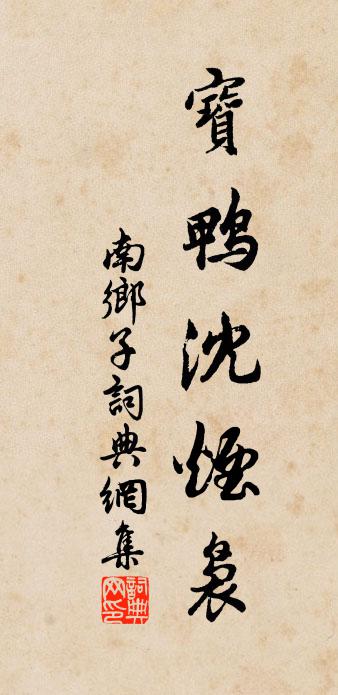 寶鴨沈煙裊
南鄉子詞典網集
詞典網印